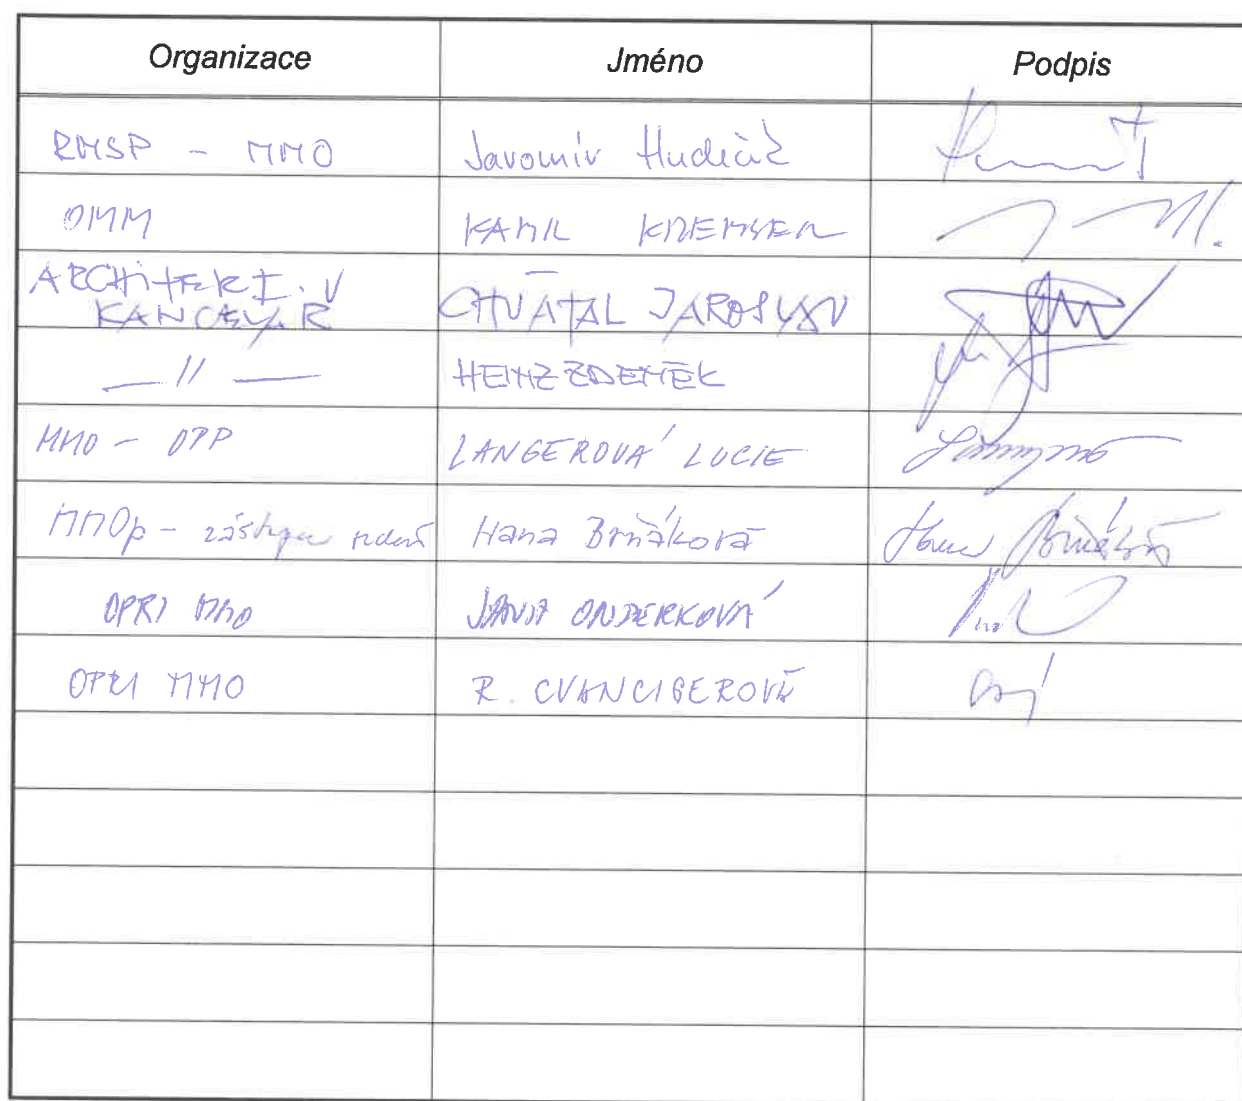 Organizace Jméno Podpis
RMSP - MMO Jaromír Hudečič
OMM KAMIL KREMSER
ARCHITEKT. V
KANCELÁŘ CHVÁTAL JAROSLAV
—//— HEINZ ZDENĚK
MMO - OPP LANGEROVÁ LUCIE
MMOp - zástupce Hana Brňáková Hana Brňáková
OPRI MMO JANA ONDERKOVÁ
OPRI MMO R. CVANCIGEROVÁ